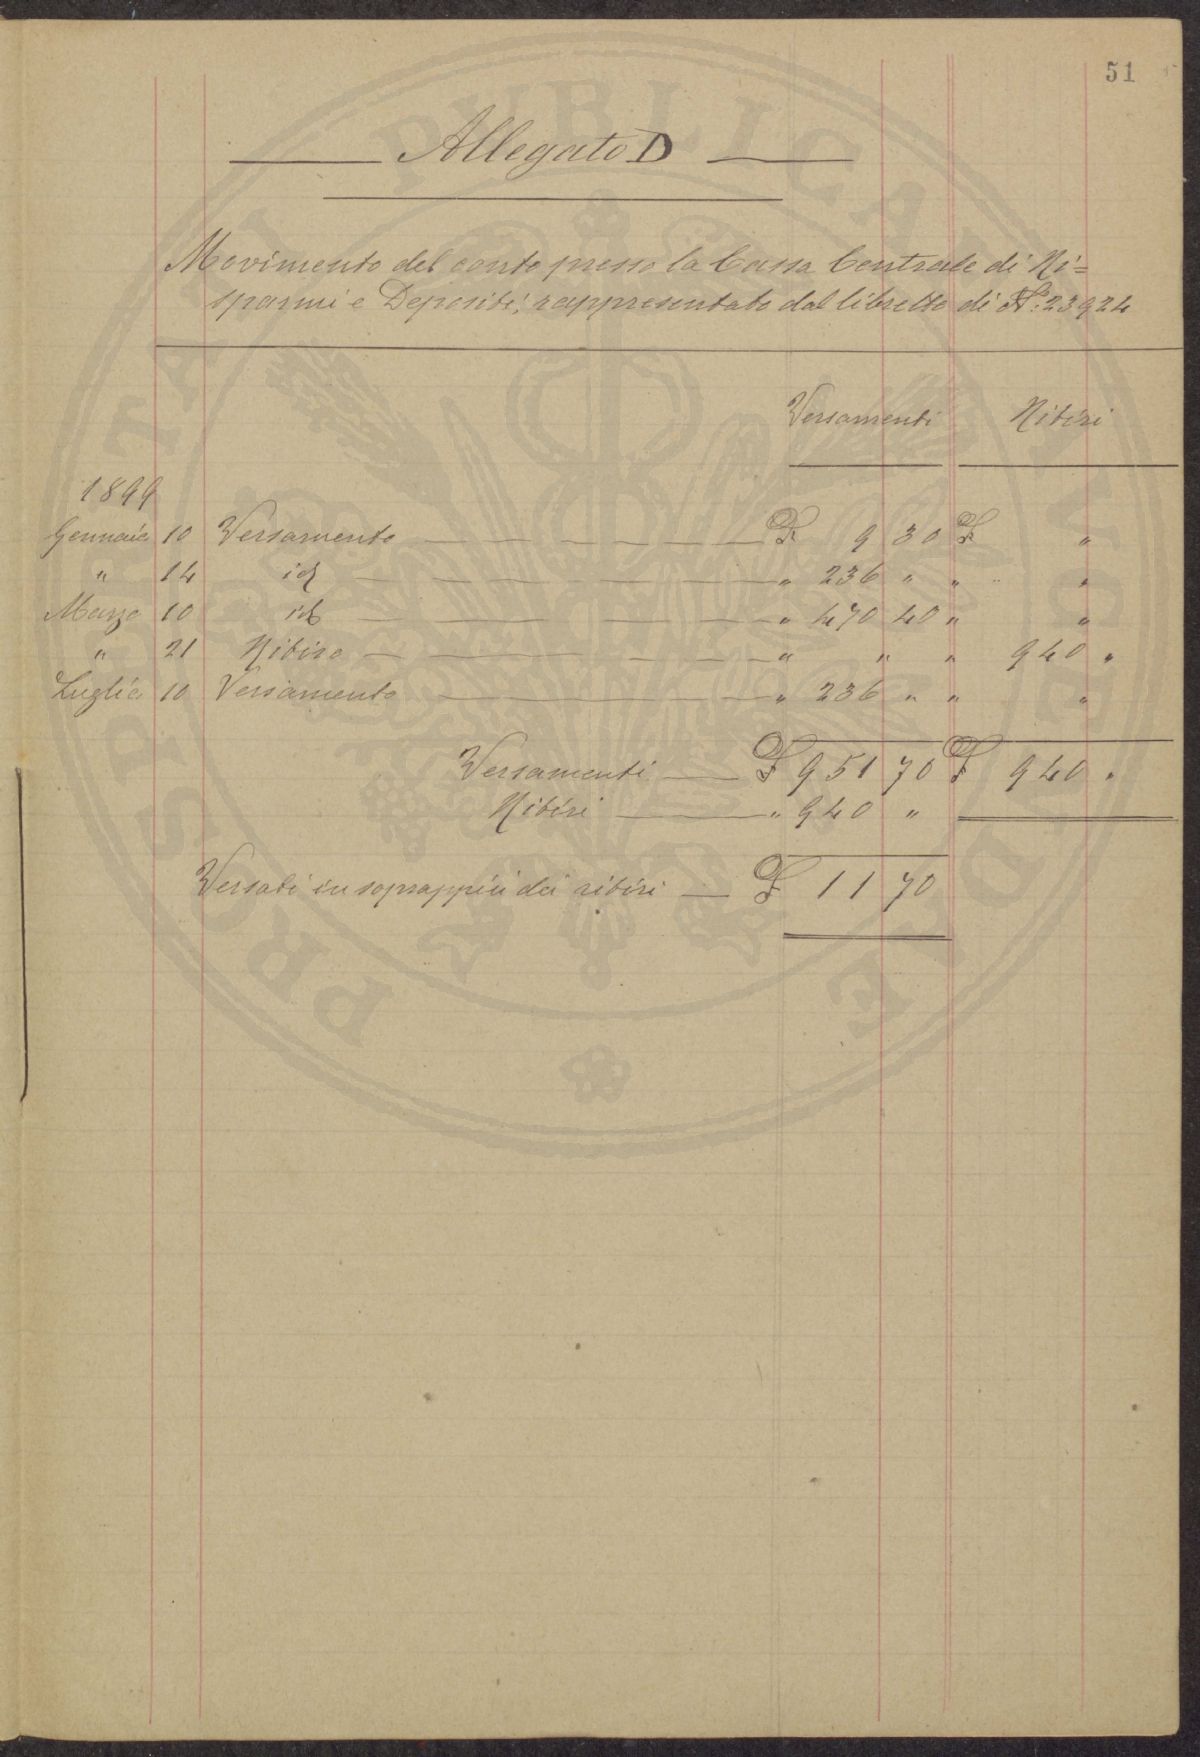 51
Allegato D
Movimento del conto presso la Cassa Centrale di Ri=
sparmi e Depositi, rappresentato dal libretto di N.° 23924
Versamenti Ritiri
1899
Gennaio 10 Versamento £ 9 30 £ "
" 14 id " 236 " " "
Marzo 10 id " 470 40 " "
" 21 Ritiro " " " 940 "
Luglio 10 Versamento " 236 " " "
Versamenti £ 951 70 £ 940 "
Ritiri " 940 "
Versati in soprappiù dei ritiri £ 11 70